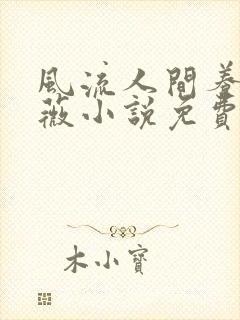 風流人間養
薇小說免費
木小寶